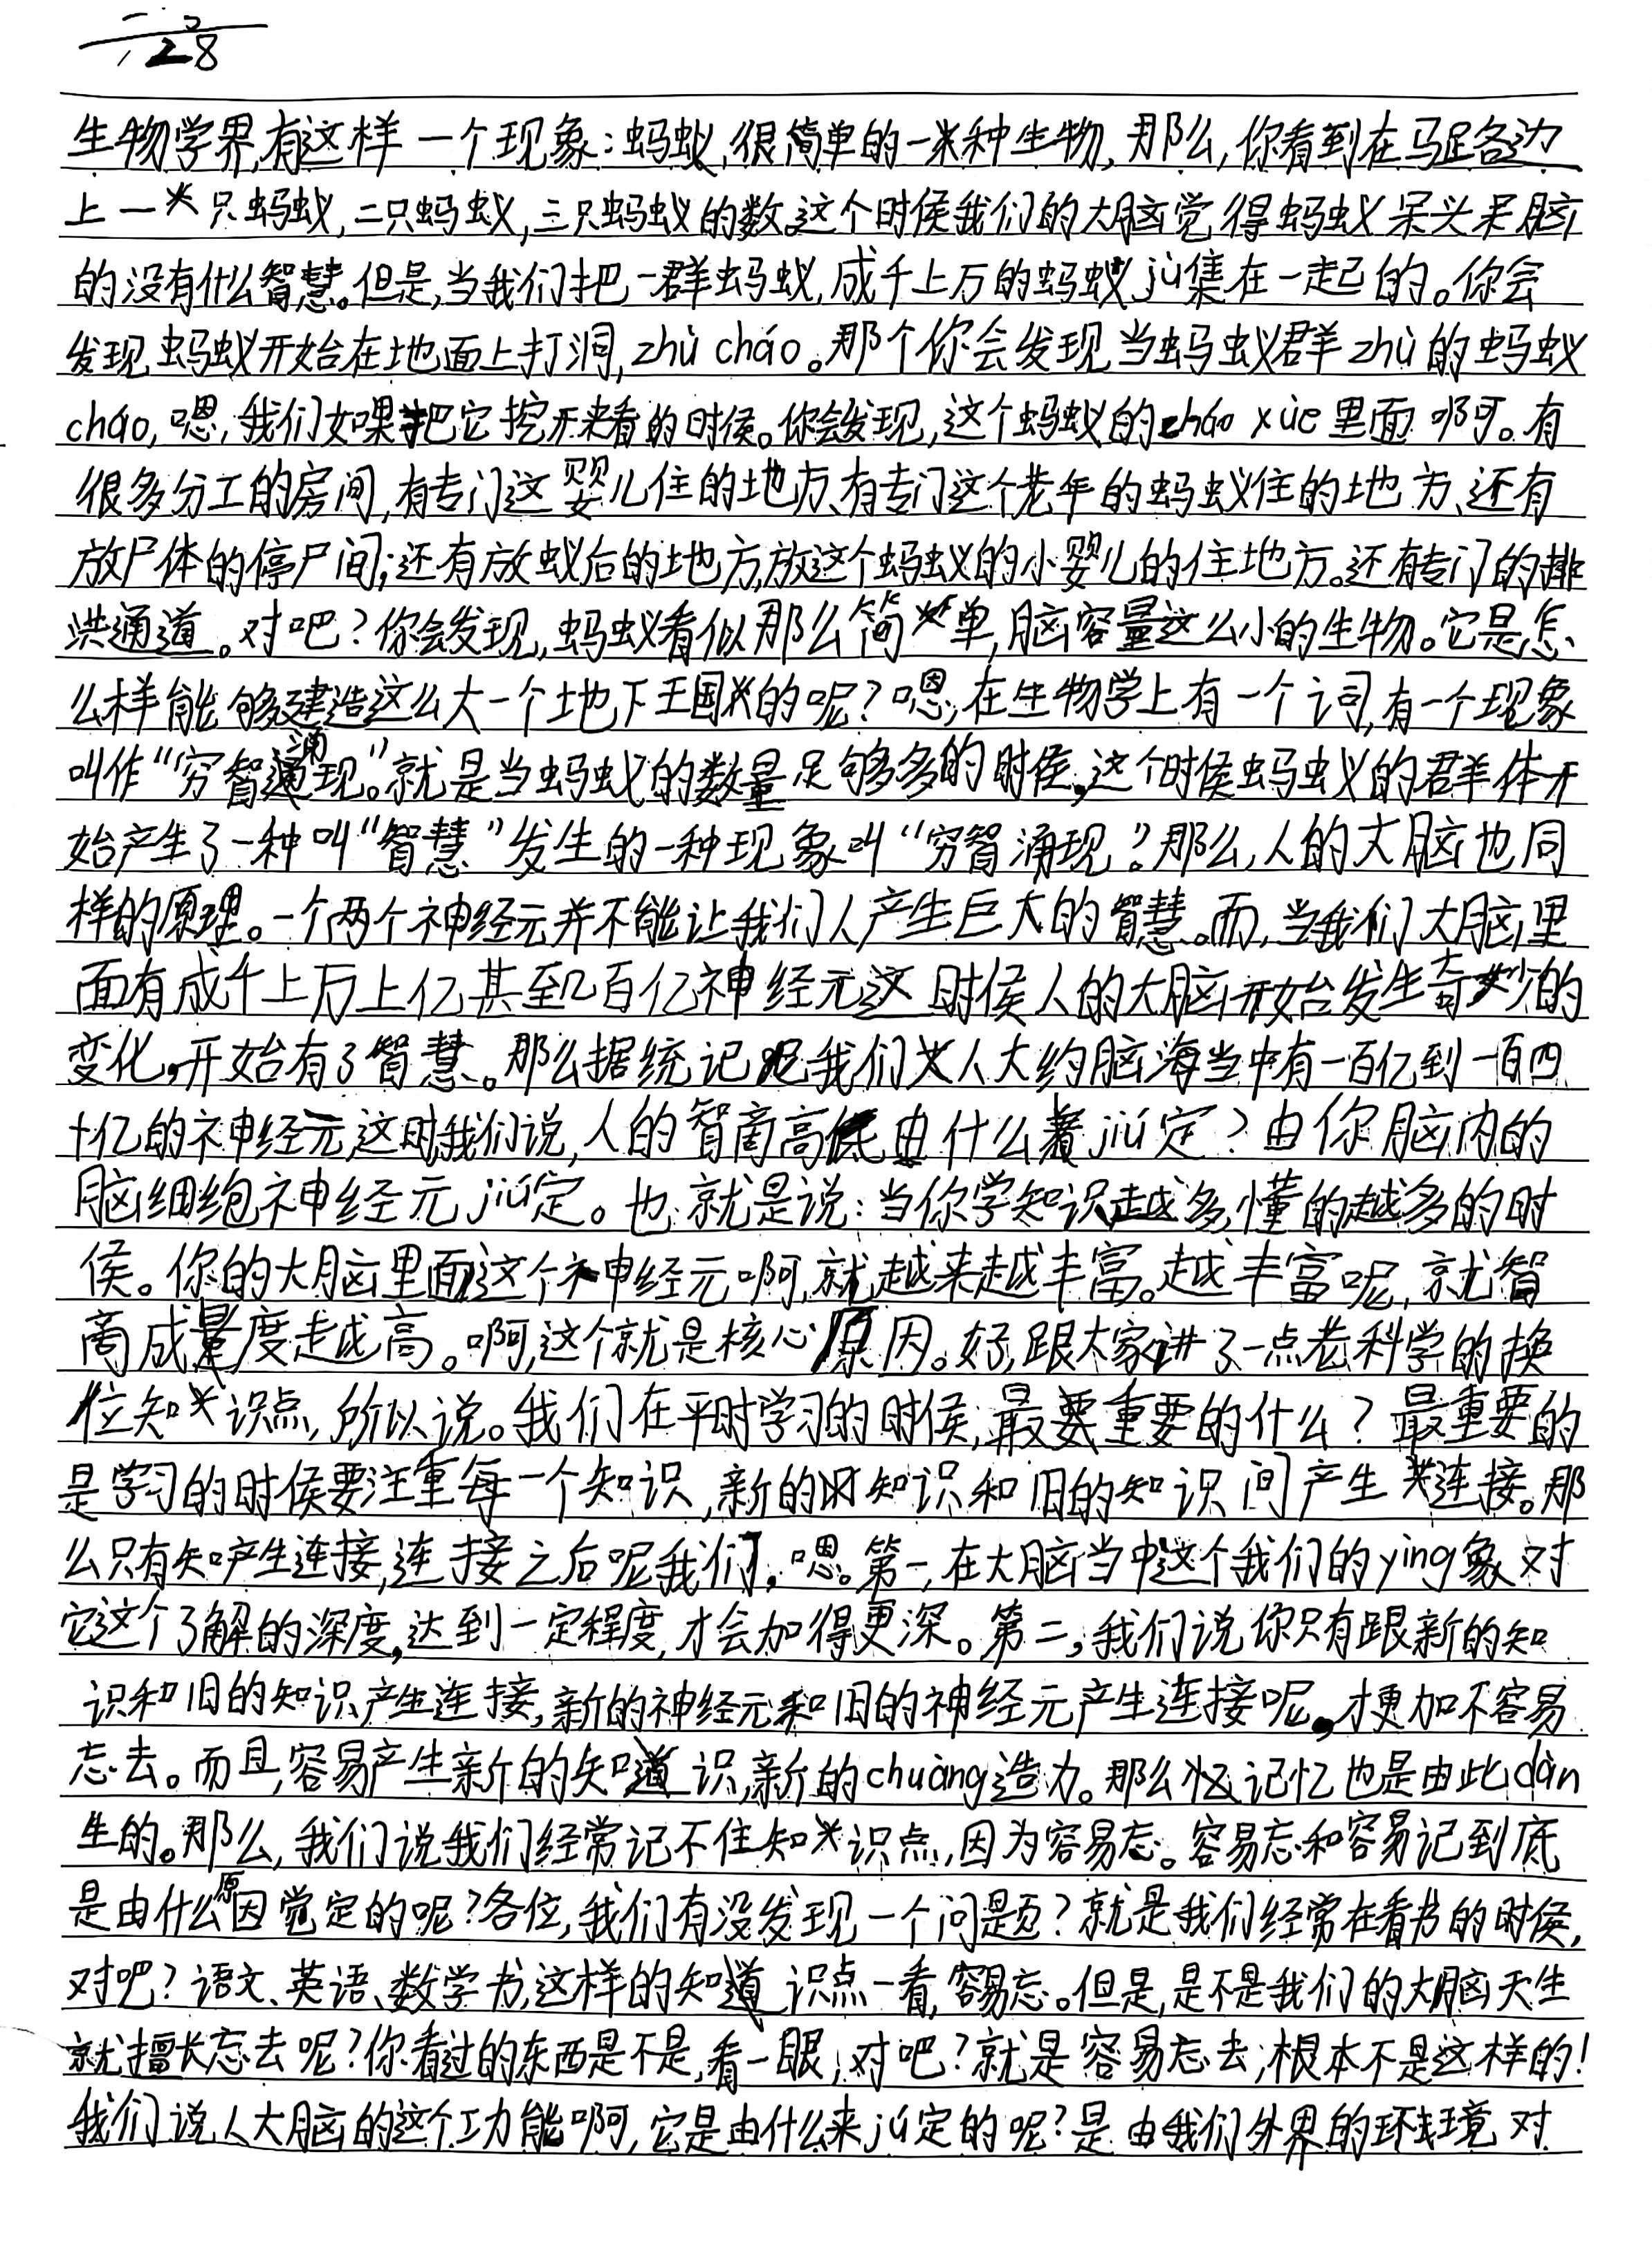 28
生物学界,有这样一个现象:蚂蚁,很简单的一种生物,那么,你看到在马足各边
上一只蚂蚁,二只蚂蚁,三只蚂蚁的数。这个时侯我们的大脑觉得蚂蚁呆头呆脑
的没有什么智慧。但是,当我们把一群蚂蚁,成千上万的蚂蚁jù集在一起的。你会
发现蚂蚁开始在地面上打洞,zhù cháo。那个你会发现当蚂蚁群zhù的蚂蚁
cháo,嗯,我们如果把它挖开来看的时侯。你会发现,这个蚂蚁的cháo xùe里面啊。有
很多分工的房间,有专门这婴儿住的地方、有专门这个老年的蚂蚁住的地方、还有
放尸体的停尸间;还有放蚁后的地方,放这个蚂蚁的小婴儿的住地方。还有专门的排
洪通道。对吧?你会发现,蚂蚁看似那么简单,脑容量这么小的生物。它是怎
么样能够建造这么大一个地下王国的呢?嗯,在生物学上有一个词,有一个现象
叫作“穷智涌现。”就是当蚂蚁的数量足够多的时侯,这个时侯蚂蚁的群体开
始产生了一种叫“智慧”发生的一种现象叫“穷智涌现”。那么,人的大脑也同
样的原理。一个两个神经元并不能让我们人产生巨大的智慧。而,当我们大脑里
面有成千上万上亿甚至几百亿神经元这时侯人的大脑开始发生奇妙的
变化,开始有了智慧。那么据统记呢我们人大约脑海当中有一百亿到一百四
十亿的神经元,这时我们说,人的智商高低由什么着jiú定?由你脑内的
脑细绝神经元jiú定。也就是说:当你学知识越多,懂的越多的时
侯。你的大脑里面这个神经元啊,就越来越丰富。越丰富呢,就智
商成度越高。啊,这个就是核心原因。好,跟大家讲了一点老科学的换
位知识点,所以说。我们在平时学习的时侯,最重要的什么?最重要的
是学习的时侯要注重每一个知识,新的知识和旧的知识间产生连接。那
么只有知产生连接,连接之后呢我们,嗯。第一,在大脑当中这个我们的yìng象对
它这个了解的深度,达到一定程度,才会加得更深。第二,我们说你只有跟新的知
识和旧的知识产生连接,新的神经元和旧的神经元产生连接呢,才更加不容易
忘去。而且,容易产生新的知识,新的chuàng造力。那么记忆也是由此dàn
生的。那么,我们说我们经常记不住知识点,因为容易忘。容易忘和容易记到底
是由什么原因觉定的呢?各位,我们有没发现一个问题?就是我们经常在看书的时侯,
对吧?语文、英语、数学书,这样的知识点一看,容易忘。但是,是不是我们的大脑天生
就擅长忘去呢?你看过的东西是不是,看一眼,对吧?就是容易忘去,根本不是这样的!
我们说人大脑的这个功能啊,它是由什么来jú定的呢?是由我们外界的环境对